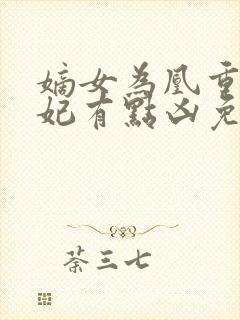 嫡女為凰重
妃有點凶免
荼三七